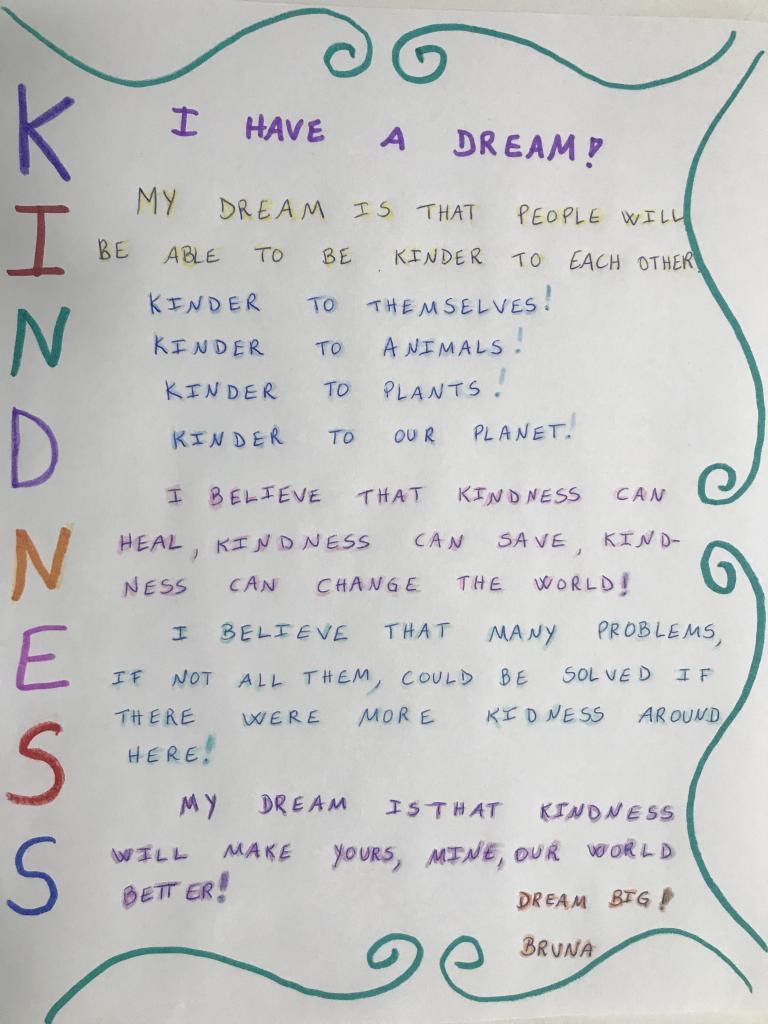 KINDNESS
I HAVE A DREAM!
MY DREAM IS THAT PEOPLE WILL
BE ABLE TO BE KINDER TO EACH OTHER
KINDER TO THEMSELVES!
KINDER TO ANIMALS!
KINDER TO PLANTS!
KINDER TO OUR PLANET!
I BELIEVE THAT KINDNESS CAN
HEAL, KINDNESS CAN SAVE, KIND-
NESS CAN CHANGE THE WORLD!
I BELIEVE THAT MANY PROBLEMS,
IF NOT ALL THEM, COULD BE SOLVED IF
THERE WERE MORE KIDNESS AROUND
HERE!
MY DREAM IS THAT KINDNESS
WILL MAKE YOURS, MINE, OUR WORLD
BETTER!
DREAM BIG!
BRUNA